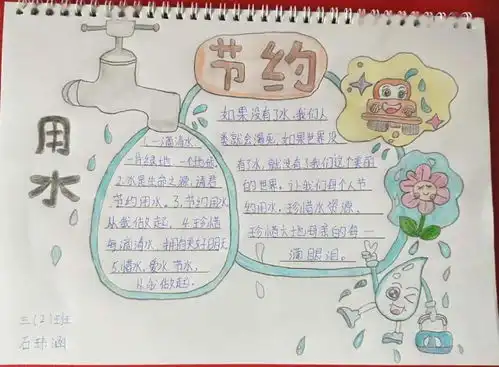 节约
用水
1.一滴清水，
一片绿地，一个地球
2.水是生命之源，请君
节约用水，3.节约用水
从我做起，4.珍惜
每滴清水，拥抱美好明天
5.惜水，爱水，节水，
从我做起。
如果没有了水，我们人
类就会渴死，如果世界没
有了水，就没有了我们这个美丽
的世界，让我们每个人节
约用水，珍惜水资源，
珍惜大地母亲的每一
滴眼泪。
三（2）班
石玮涵